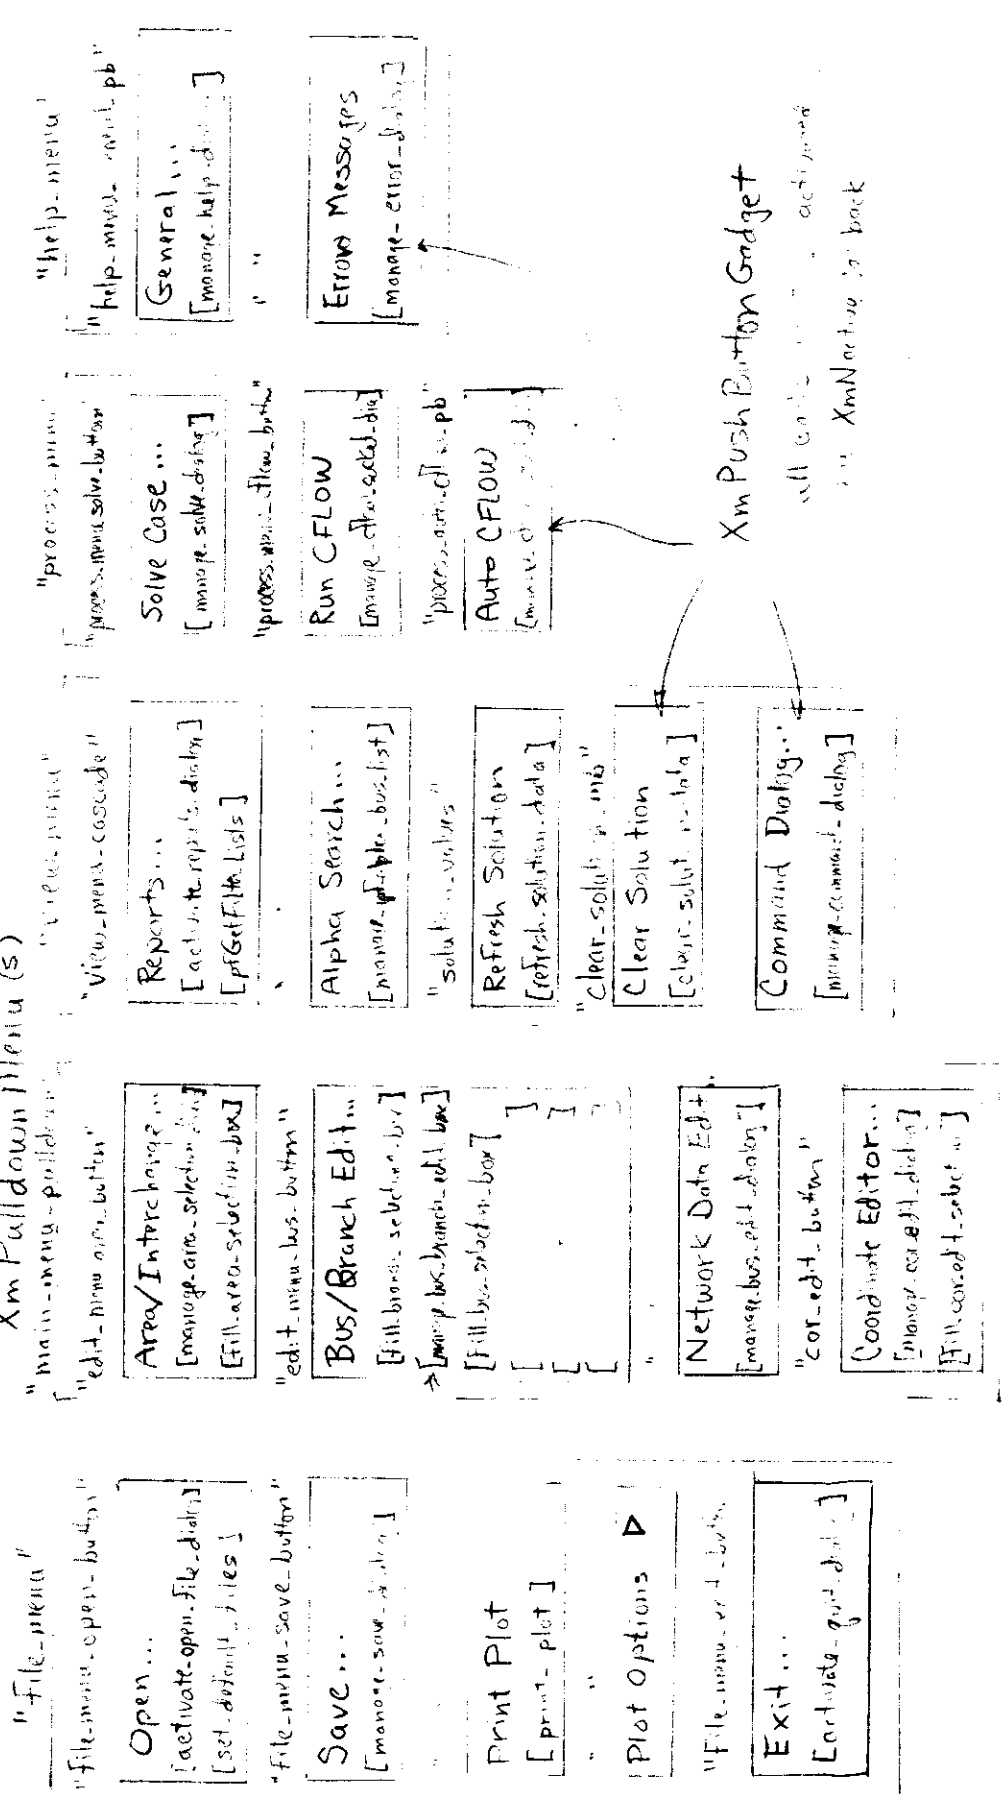 Xm Pulldown Menu (s)
"file-menu"
"file-menu-open-button"
Open...
[activate-open-file-dialog]
[set-default-files]
"file-menu-save-button"
Save...
[manage-save-dialog]
Print Plot
[print-plot]
" "
Plot Options ▷
"file-menu-exit-button
Exit...
[activate-quit-dialog]
"main-menu-pulldown
"edit-menu-area-button"
Area/Interchange...
[manage-area-selection-dialog]
[fill-area-selection-box]
"edit-menu-bus-button"
Bus/Branch Edit...
[fill-branch-selection-box]
→[manage-bus-branch-edit-box]
[fill-bus-selection-box]
[ ]
[ ]
[ ]
"
Network Data Edit..
[manage-bus-edit-dialog]
"cor-edit-button"
Coordinate Editor...
[manage-cor-edit-dialog]
[fill-cor-edit-selection]
"view-menu"
"view-menu-cascade"
Reports...
[activate-reports-dialog]
[pfGetFilterLists]
Alpha Search...
[manage-pf-alpha-bus-list]
"solution-values"
Refresh Solution
[refresh-solution-data]
"clear-solution-mb"
Clear Solution
[clear-solution-data]
Command Dialog...
[manage-command-dialog]
"process-menu"
"process-menu-solve-button"
Solve Case...
[manage-solve-dialog]
"process-menu-cflow-button"
Run CFLOW
[manage-cflow-socket-dia]
"process-auto-cflow-pb"
Auto CFLOW
"help-menu"
"help-menu- -pb"
General...
[manage-help-dialog]
" "
Error Messages
[manage-error-dialog]
XmPushButtonGadget
all activated
XmNactivate back